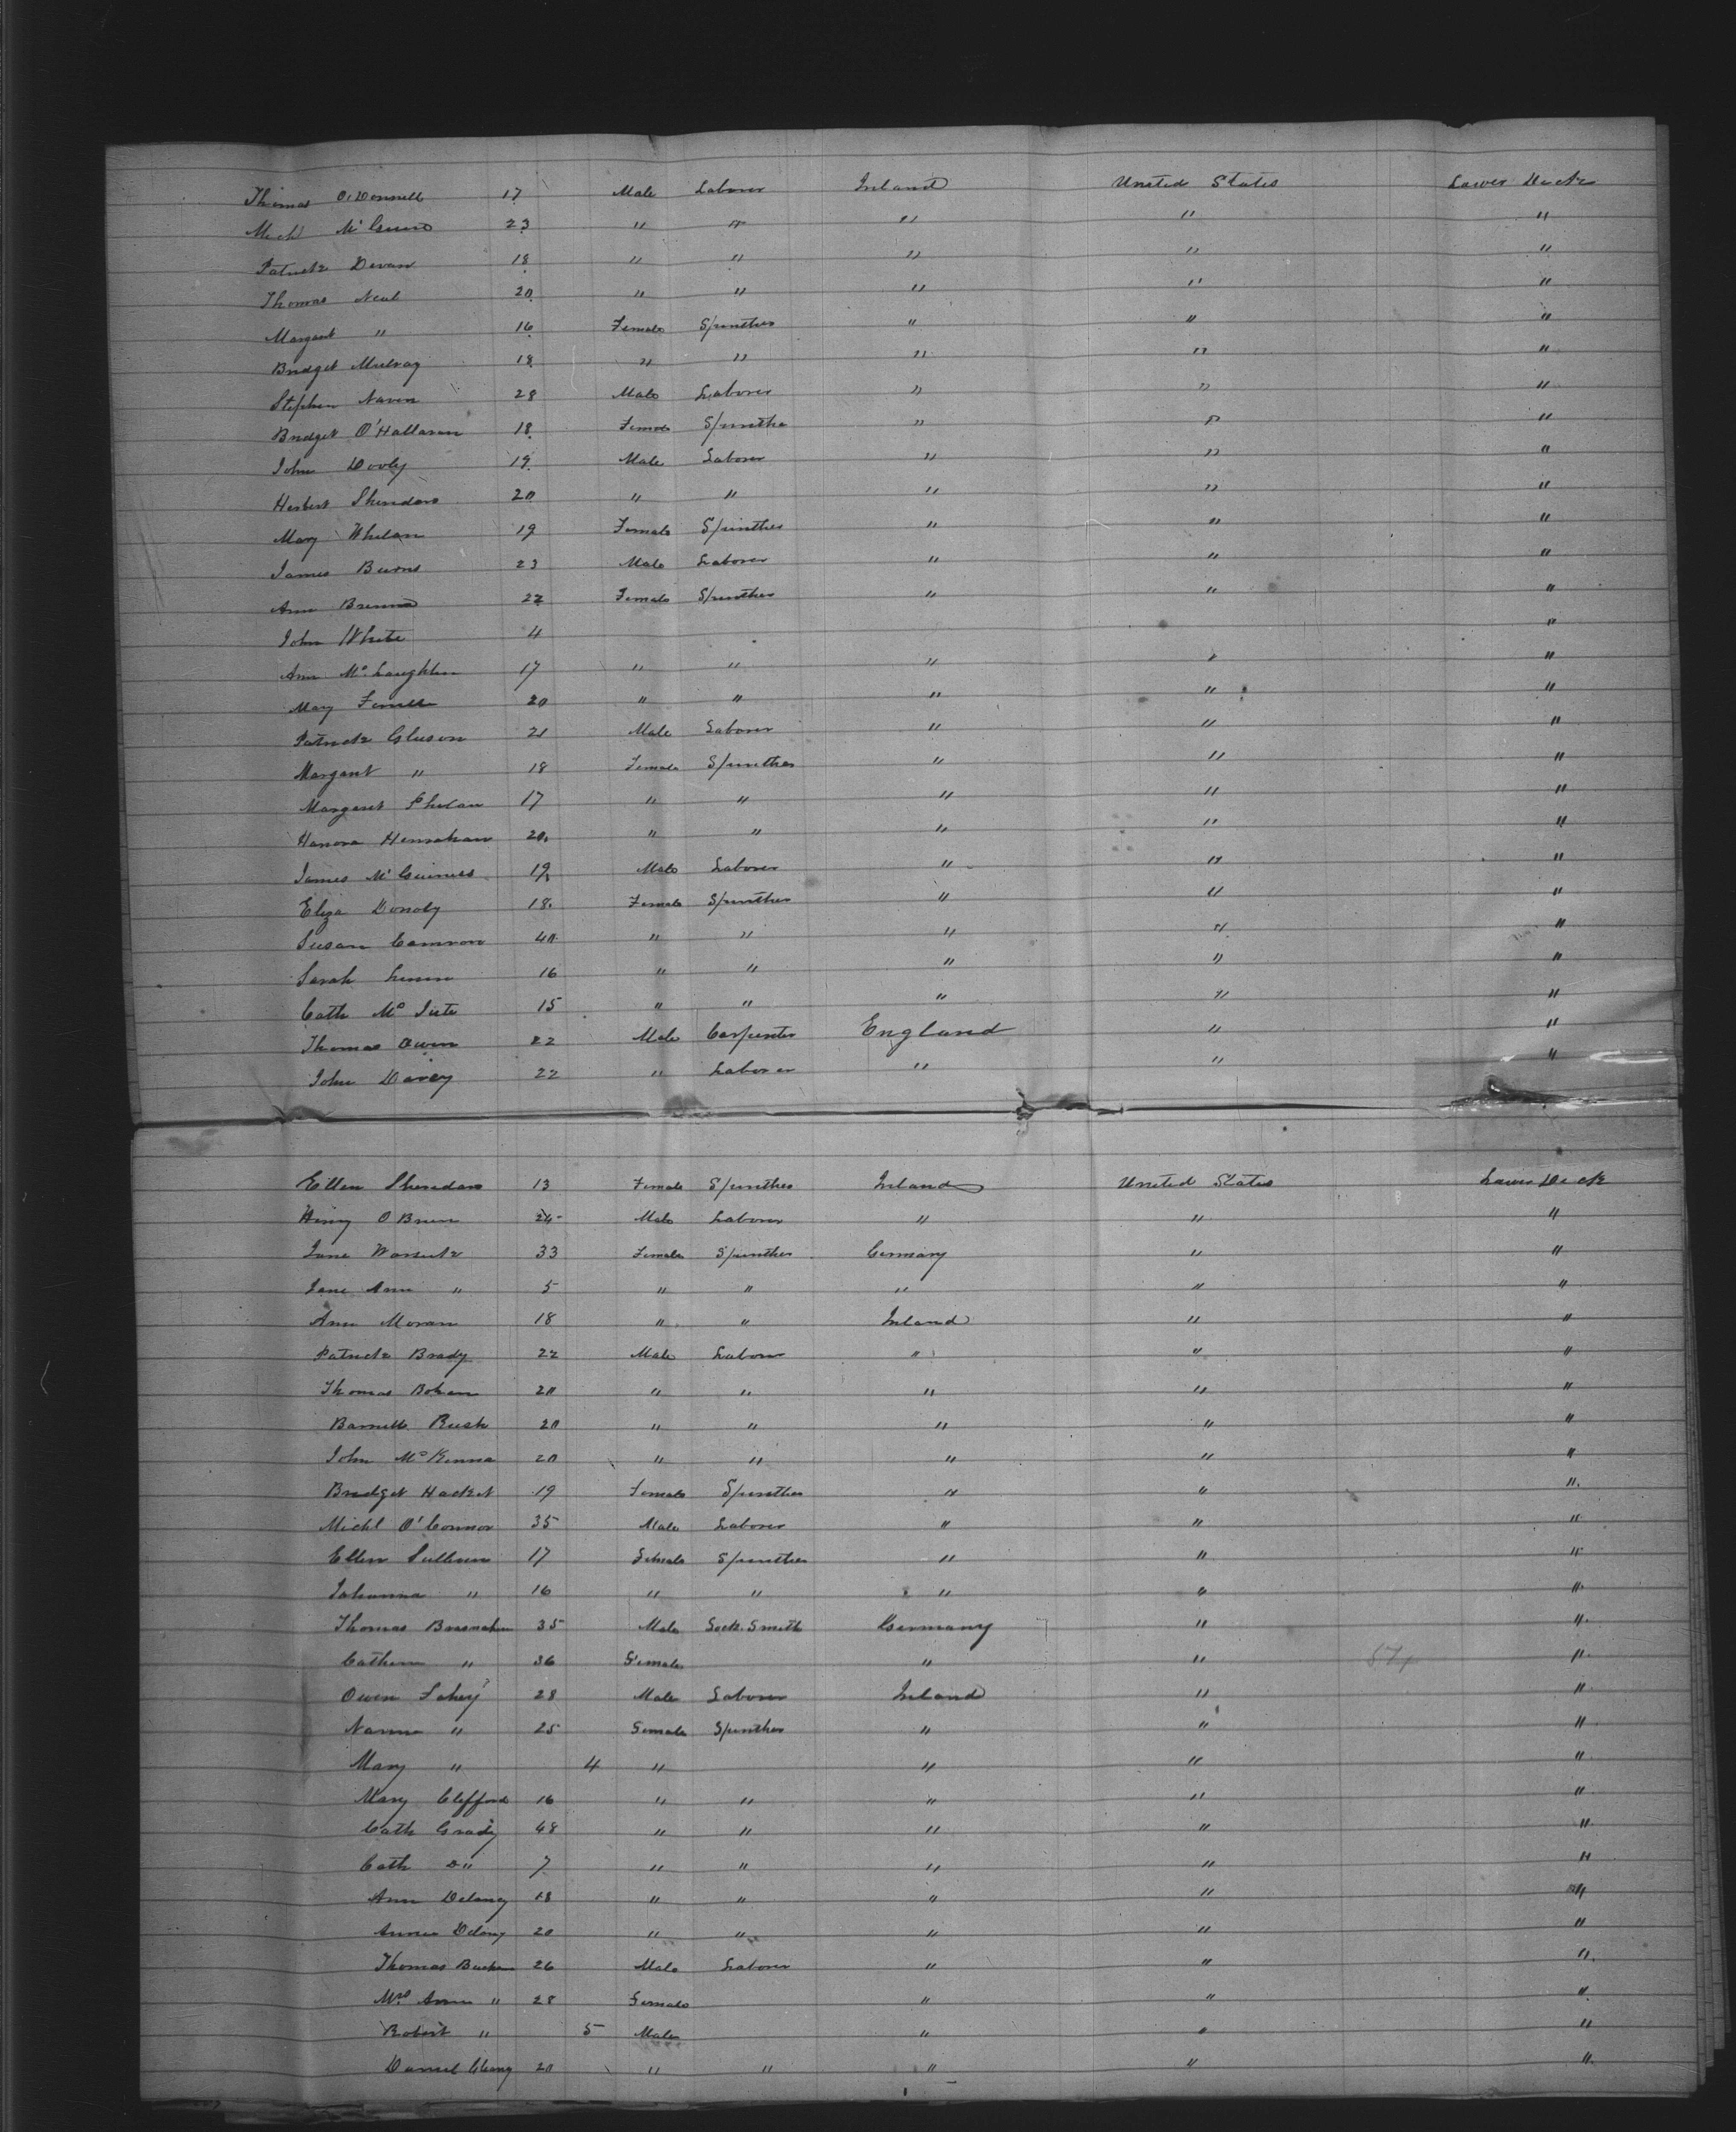 Thomas O'Donnell 17 Male Laborer Ireland United States Lower Deck
Mich McGuire 23 " " " " "
Patrick Devan 18 " " " " "
Thomas Neal 20 " " " " "
Margaret " 16 Female Spinster " " "
Bridget Mulray 18 " " " " "
Stephen Naven 28 Male Laborer " " "
Bridget O'Hallaran 18 Female Spinster " " "
John Dooly 19 Male Laborer " " "
Herbert Sheridan 20 " " " " "
Mary Whelan 19 Female Spinster " " "
James Burns 23 Male Laborer " " "
Ann 22 Female Spinster " " "
John White 4 "
Ann McLaughlin 17 " " " " "
Mary 20 " " " " "
Patrick Gleason 21 Male Laborer " " "
Margaret " 18 Female Spinster " " "
Margaret Phelan 17 " " " " "
Hanora Hanrahan 20 " " " " "
James McGuiness 19 Male Laborer " " "
Eliza 18 Female Spinster " " "
Susan Camron 40 " " " " "
Sarah 16 " " " " "
Cath Mc 15 " " " " "
Thomas Owen 22 Male Carpenter England " "
John Davey 22 " Laborer " " "
Ellen Sheridan 13 Female Spinster Ireland United States Lower Deck
Henry O Brien 24 Male Laborer " " "
Jane 33 Female Spinster Germany " "
Jane Ann " 5 " " " " "
Ann Moran 18 " " Ireland " "
Patrick Brady 22 Male Laborer " " "
Thomas Bohan 20 " " " " "
Rush 20 " " " " "
John McKenna 20 " " " " "
Bridget Hacket 19 Female Spinster " " "
Michl O'Connor 35 Male Laborer " " "
Ellen Sullivan 17 Female Spinster " " "
Johanna " 16 " " " " "
Thomas Bresnahan 35 Male Lock Smith Germany " "
Catherine " 36 Female " " "
Owen Fahey 28 Male Laborer Ireland " "
" 25 Female Spinster " " "
Mary " 4 " " " "
Mary Clifford 16 " " " " "
Cath Grady 48 " " " " "
Cath Do " 7 " " " " "
Ann Delaney 18 " " " " "
Annie Delany 20 " " " " "
Thomas 26 Male Laborer " " "
Mrs Ann " 28 Female " " "
Robert " 5 Male " " "
Daniel 20 " " " " "